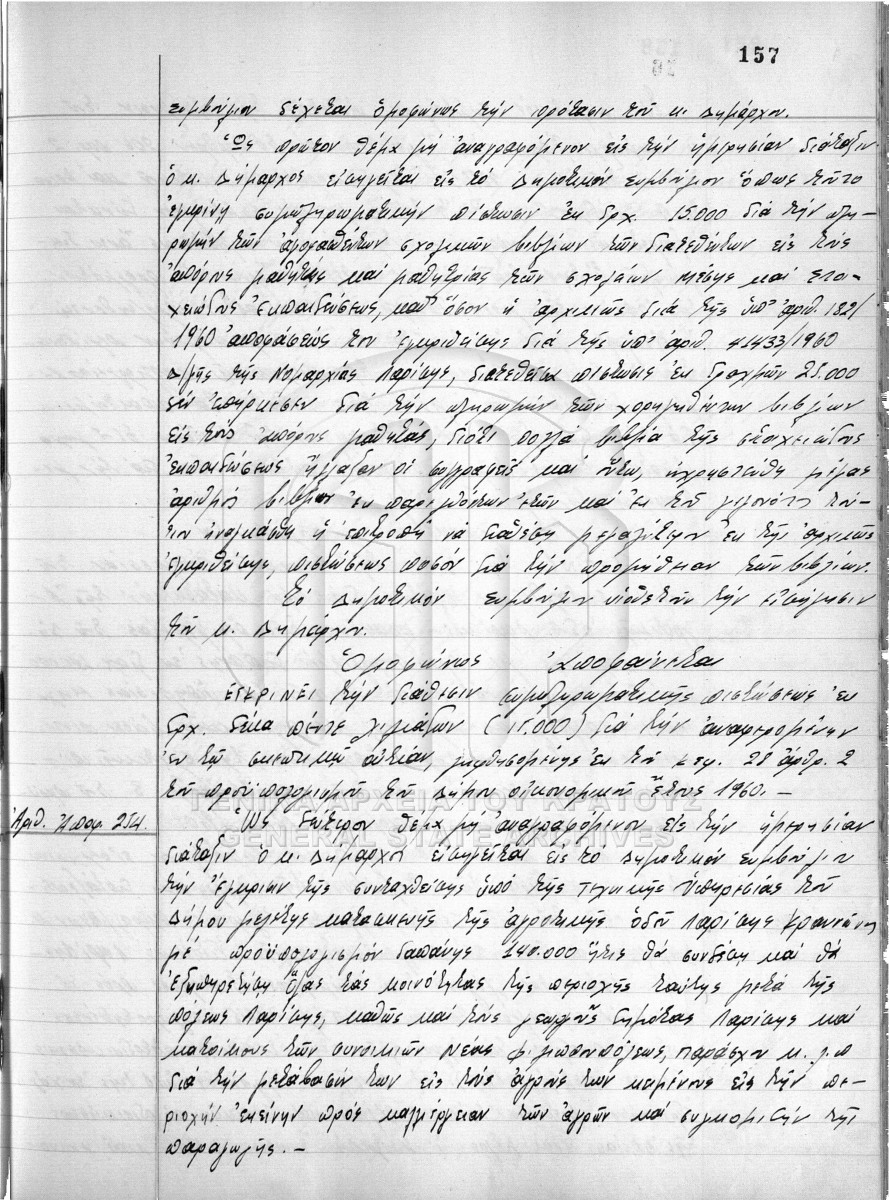 157
Συμβούλιον δέχεται ὁμοφώνως τήν πρότασιν τοῦ κ. Δημάρχου.
Ὡς πρῶτον θέμα μή ἀναγραφόμενον εἰς τήν ἡμερησίαν διάταξιν
ὁ κ. Δήμαρχος εἰσηγεῖται εἰς τό Δημοτικόν Συμβούλιον ὅπως τοῦτο
ἐγκρίνῃ συμπληρωματικήν πίστωσιν ἐκ δρχ. 15.000 διά τήν πλη-
ρωμήν τῶν ἀγορασθέντων σχολικῶν βιβλίων τῶν διατεθέντων εἰς τούς
ἀπόρους μαθητάς καί μαθητρίας τῶν σχολείων Μέσης καί Στοι-
χειώδους Ἐκπαιδεύσεως, καθ' ὅσον ἡ ἀρχικῶς διά τῆς ὑπ' ἀριθ. 182/
1960 ἀποφάσεώς του ἐγκριθείσης διά τῆς ὑπ' ἀριθ. 41433/1960
Δ/γῆς τῆς Νομαρχίας Λαρίσης, διατεθεῖσα πίστωσις ἐκ δραχμῶν 25.000
δέν ἐπήρκεσεν διά τήν πληρωμήν τῶν χορηγηθέντων βιβλίων
εἰς τούς ἀπόρους μαθητάς, διότι πολλά βιβλία τῆς στοιχειώδους
ἐκπαιδεύσεως ἤλλαξαν οἱ συγγραφεῖς καί οὕτω, ἠχρηστεύθη μέγας
ἀριθμός βιβλίων ἐκ παρελθόντων ἐτῶν καί ἐκ τοῦ γεγονότος τού-
του ἠναγκάσθη ἡ ἐπιτροπή νά διαθέσῃ μεγαλύτερον ἐκ τῆς ἀρχικῶς
ἐγκριθείσης, πιστώσεως ποσόν διά τήν προμήθειαν τῶν βιβλίων.
Τό Δημοτικόν Συμβούλιον υἱοθετοῦν τήν εἰσήγησιν
τοῦ κ. Δημάρχου.
Ὁμοφώνως Ἀποφαίνεται
ΕΓΚΡΙΝΕΙ τήν διάθεσιν συμπληρωματικῆς πιστώσεως ἐκ
δρχ. δέκα πέντε χιλιάδων (15.000) διά τήν ἀναφερομένην
ἐν τῷ σκεπτικῷ αἰτίαν, ληφθησομένης ἐκ τοῦ κεφ. 28 ἄρθρ. 2
τοῦ προϋπολογισμοῦ τοῦ Δήμου οἰκονομικοῦ ἔτους 1960. —
ΓΕΝΙΚΑ ΑΡΧΕΙΑ ΤΟΥ ΚΡΑΤΟΥΣ
GENERAL STATE ARCHIVES
Ἀριθ. Ἀποφ. 254.
Ὡς δεύτερον θέμα μή ἀναγραφόμενον εἰς τήν ἡμερησίαν
διάταξιν ὁ κ. Δήμαρχος εἰσηγεῖται εἰς τό Δημοτικόν Συμβούλιον
τήν ἔγκρισιν τῆς συνταχθείσης ὑπό τῆς τεχνικῆς ὑπηρεσίας τοῦ
Δήμου μελέτης κατασκευῆς τῆς ἀγροτικῆς ὁδοῦ Λαρίσης Κραννῶνος
μέ προϋπολογισμόν δαπάνης 140.000 ἥτις θά συνδέσῃ καί θά
ἐξυπηρετήσῃ ὅλας τάς κοινότητας τῆς περιοχῆς ταύτης μετά τῆς
πόλεως Λαρίσης, καθώς καί τούς γεωργούς δημότας Λαρίσης καί
κατοίκους τῶν συνοικιῶν Νέας Φιλιππουπόλεως, παράσχου κ.λ.π
διά τήν μετάβασίν των εἰς τούς ἀγρούς των κειμένους εἰς τήν πε-
ριοχήν ἐκείνην πρός καλλιέργειαν τῶν ἀγρῶν καί συγκομιδήν τῆς
παραγωγῆς. —